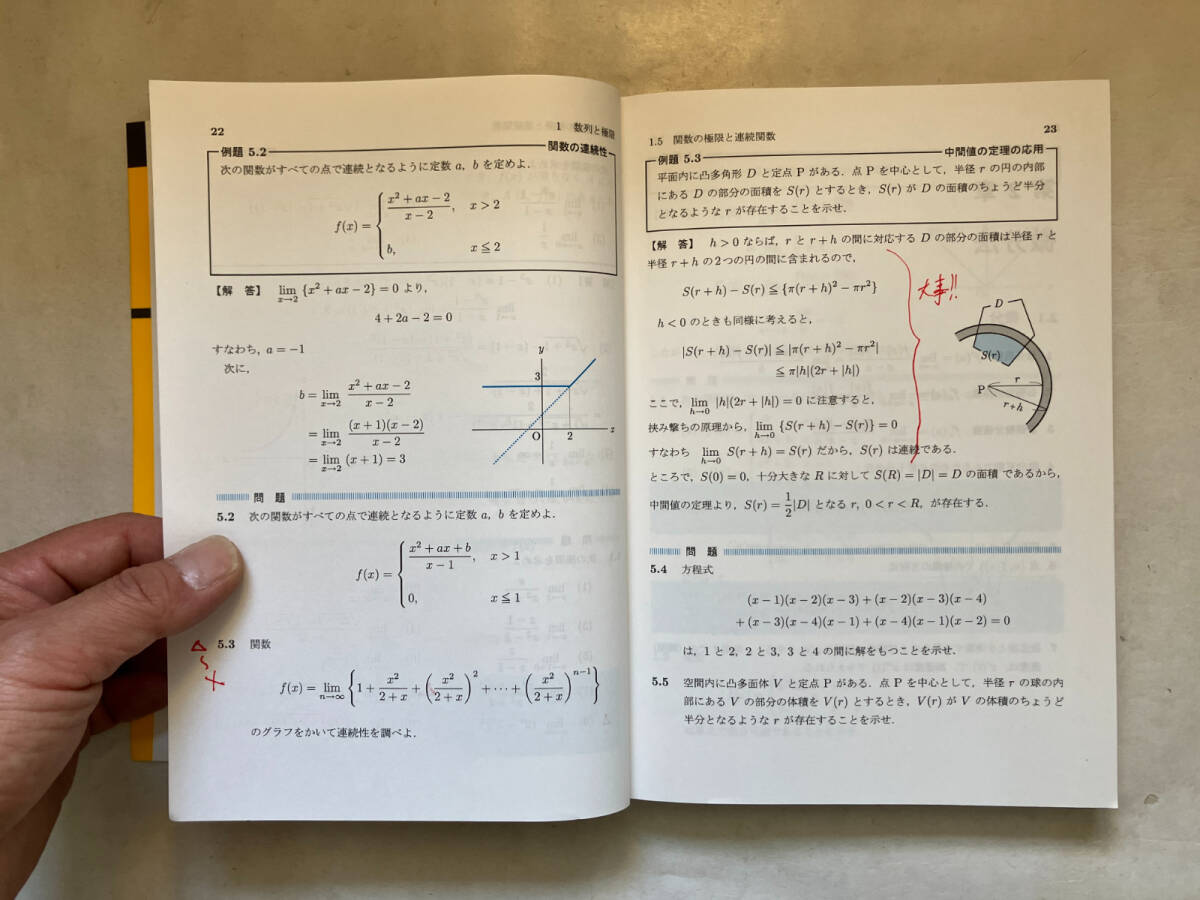 22
1 数列と極限
例題 5.2
関数の連続性
次の関数がすべての点で連続となるように定数 a, b を定めよ.
f(x) = { (x² + ax − 2)/(x − 2), x > 2
b, x ≦ 2
【解 答】 lim_{x→2} {x² + ax − 2} = 0 より,
4 + 2a − 2 = 0
すなわち, a = −1
次に,
b = lim_{x→2} (x² + ax − 2)/(x − 2)
= lim_{x→2} (x + 1)(x − 2)/(x − 2)
= lim_{x→2} (x + 1) = 3
y
3
O
2
x
問 題
5.2 次の関数がすべての点で連続となるように定数 a, b を定めよ.
f(x) = { (x² + ax + b)/(x − 1), x > 1
0, x ≦ 1
5.3 関数
f(x) = lim_{n→∞} {1 + x²/(2 + x) + (x²/(2 + x))² + ··· + (x²/(2 + x))^{n−1}}
のグラフをかいて連続性を調べよ.
1.5 関数の極限と連続関数
23
例題 5.3
中間値の定理の応用
平面内に凸多角形 D と定点 P がある. 点 P を中心として, 半径 r の円の内部
にある D の部分の面積を S(r) とするとき, S(r) が D の面積のちょうど半分
となるような r が存在することを示せ.
【解 答】 h > 0 ならば, r と r + h の間に対応する D の部分の面積は半径 r と
半径 r + h の 2 つの円の間に含まれるので,
S(r + h) − S(r) ≦ {π(r + h)² − πr²}
大事!!
h < 0 のときも同様に考えると,
|S(r + h) − S(r)| ≦ |π(r + h)² − πr²|
≦ π|h|(2r + |h|)
D
S(r)
P
r
r+h
ここで, lim_{h→0} |h|(2r + |h|) = 0 に注意すると,
挟み撃ちの原理から, lim_{h→0} {S(r + h) − S(r)} = 0
すなわち lim_{h→0} S(r + h) = S(r) だから, S(r) は連続である.
ところで, S(0) = 0, 十分大きな R に対して S(R) = |D| = D の面積 であるから,
中間値の定理より, S(r) = 1/2|D| となる r, 0 < r < R, が存在する.
問 題
5.4 方程式
(x − 1)(x − 2)(x − 3) + (x − 2)(x − 3)(x − 4)
+ (x − 3)(x − 4)(x − 1) + (x − 4)(x − 1)(x − 2) = 0
は, 1 と 2, 2 と 3, 3 と 4 の間に解をもつことを示せ.
5.5 空間内に凸多面体 V と定点 P がある. 点 P を中心として, 半径 r の球の内
部にある V の部分の体積を V(r) とするとき, V(r) が V の体積のちょうど
半分となるような r が存在することを示せ.